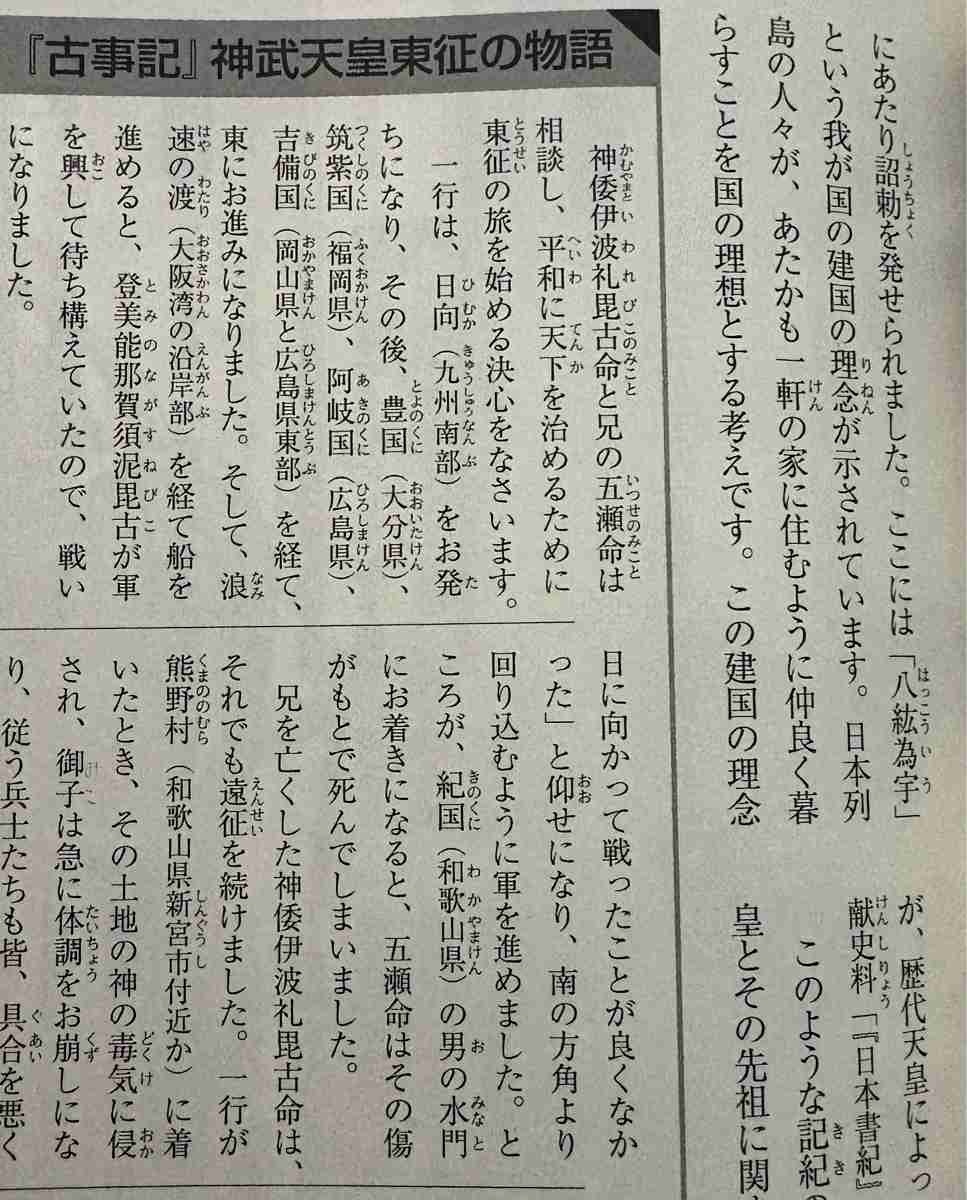 にあたり詔勅を発せられました。ここには「八紘為宇」
という我が国の建国の理念が示されています。日本列
島の人々が、あたかも一軒の家に住むように仲良く暮
らすことを国の理想とする考えです。この建国の理念
が、歴代天皇によっ
献史料「『日本書紀』
このような記紀の
皇とその先祖に関
『古事記』神武天皇東征の物語
神倭伊波礼毘古命と兄の五瀬命は
相談し、平和に天下を治めるために
東征の旅を始める決心をなさいます。
一行は、日向（九州南部）をお発
ちになり、その後、豊国（大分県）、
筑紫国（福岡県）、阿岐国（広島県）、
吉備国（岡山県と広島県東部）を経て、
東にお進みになりました。そして、浪
速の渡（大阪湾の沿岸部）を経て船を
進めると、登美能那賀須泥毘古が軍
を興して待ち構えていたので、戦い
になりました。
日に向かって戦ったことが良くなか
った」と仰せになり、南の方角より
回り込むように軍を進めました。と
ころが、紀国（和歌山県）の男の水門
にお着きになると、五瀬命はその傷
がもとで死んでしまいました。
兄を亡くした神倭伊波礼毘古命は、
それでも遠征を続けました。一行が
熊野村（和歌山県新宮市付近か）に着
いたとき、その土地の神の毒気に侵
され、御子は急に体調をお崩しにな
り、従う兵士たちも皆、具合を悪く